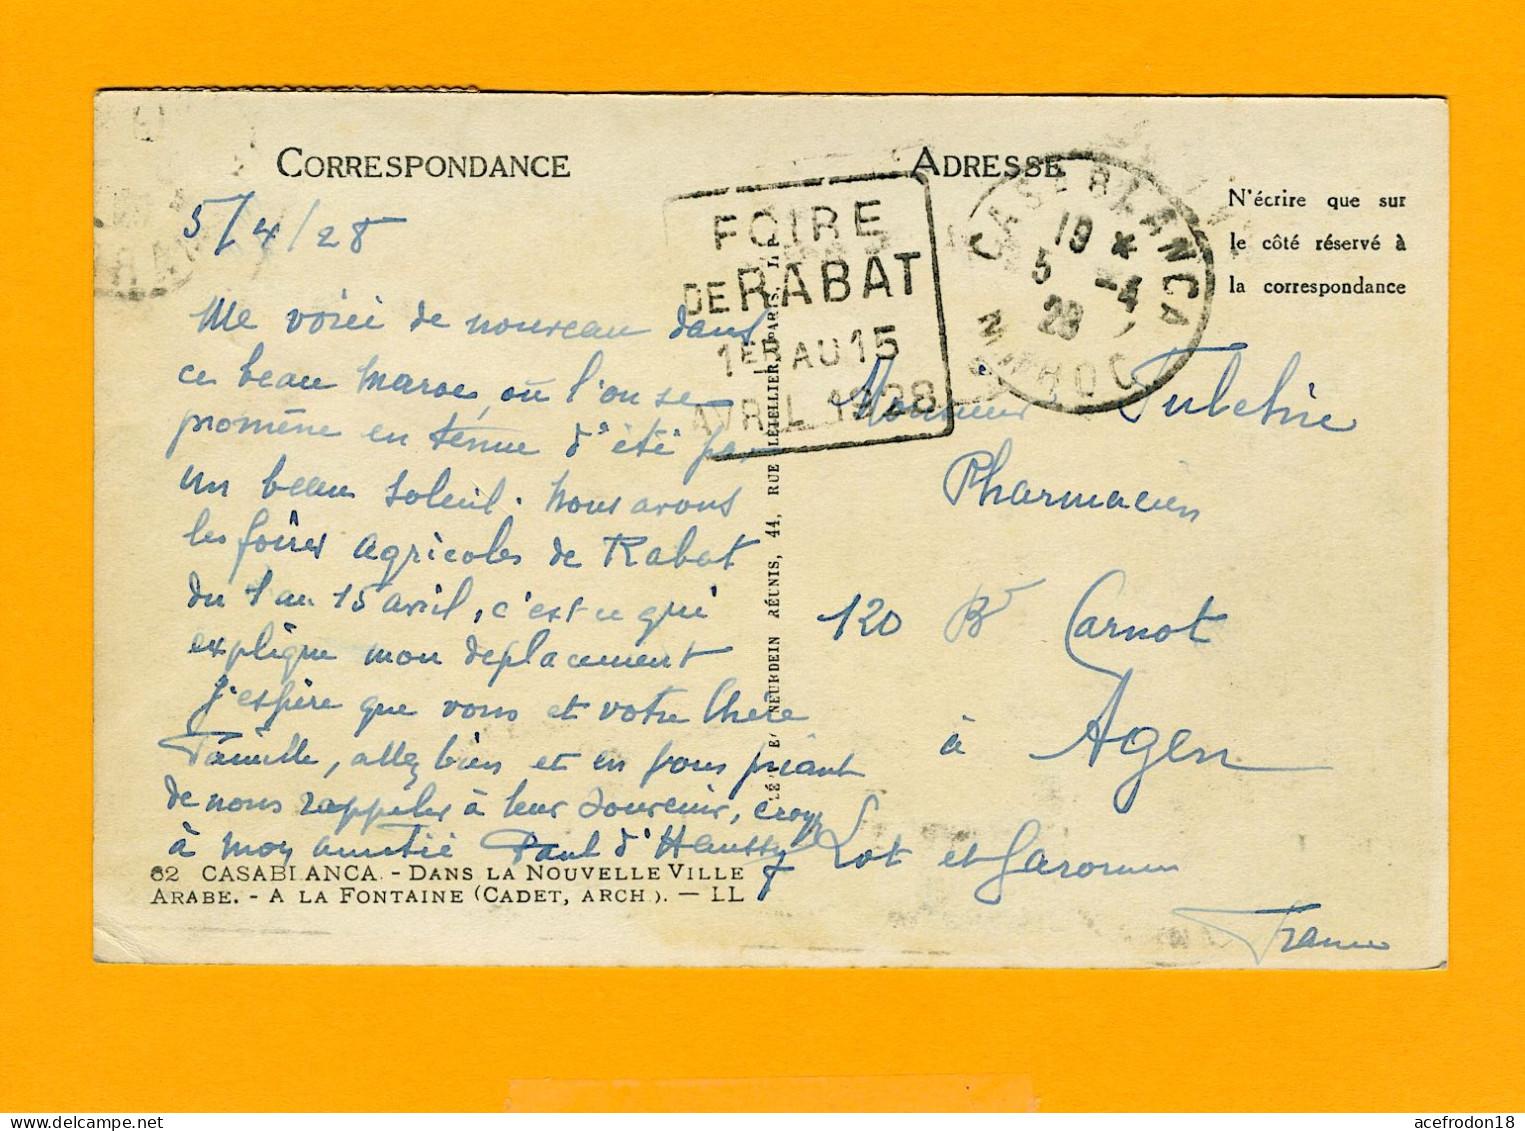 CORRESPONDANCE
5/4/28
Me voici de nouveau dans
ce beau Maroc, où l'on se
promène en tenue d'été par
un beau soleil. Nous avons
les foires agricoles de Rabat
du 1 au 15 avril, c'est ce qui
explique mon deplacement
J'espère que vous et votre chere
Famille, allez bien et en vous priant
de nous rappeler à leur souvenir, croyez
à mon amitié Paul d'
62 CASABLANCA. - DANS LA NOUVELLE VILLE
ARABE. - A LA FONTAINE (CADET, ARCH.). — LL
NEURDEIN RÉUNIS, 44, RUE LETELLIER, PARIS
FOIRE
DE RABAT
1ER AU 15
AVRIL 1928
ADRESSE
CASABLANCA
19 *
5 -4
28
MAROC
N'écrire que sur
le côté réservé à
la correspondance
Monsieur
Pharmacien
120 Bd Carnot
à Agen
Lot et Garonne
France
acefrodon18